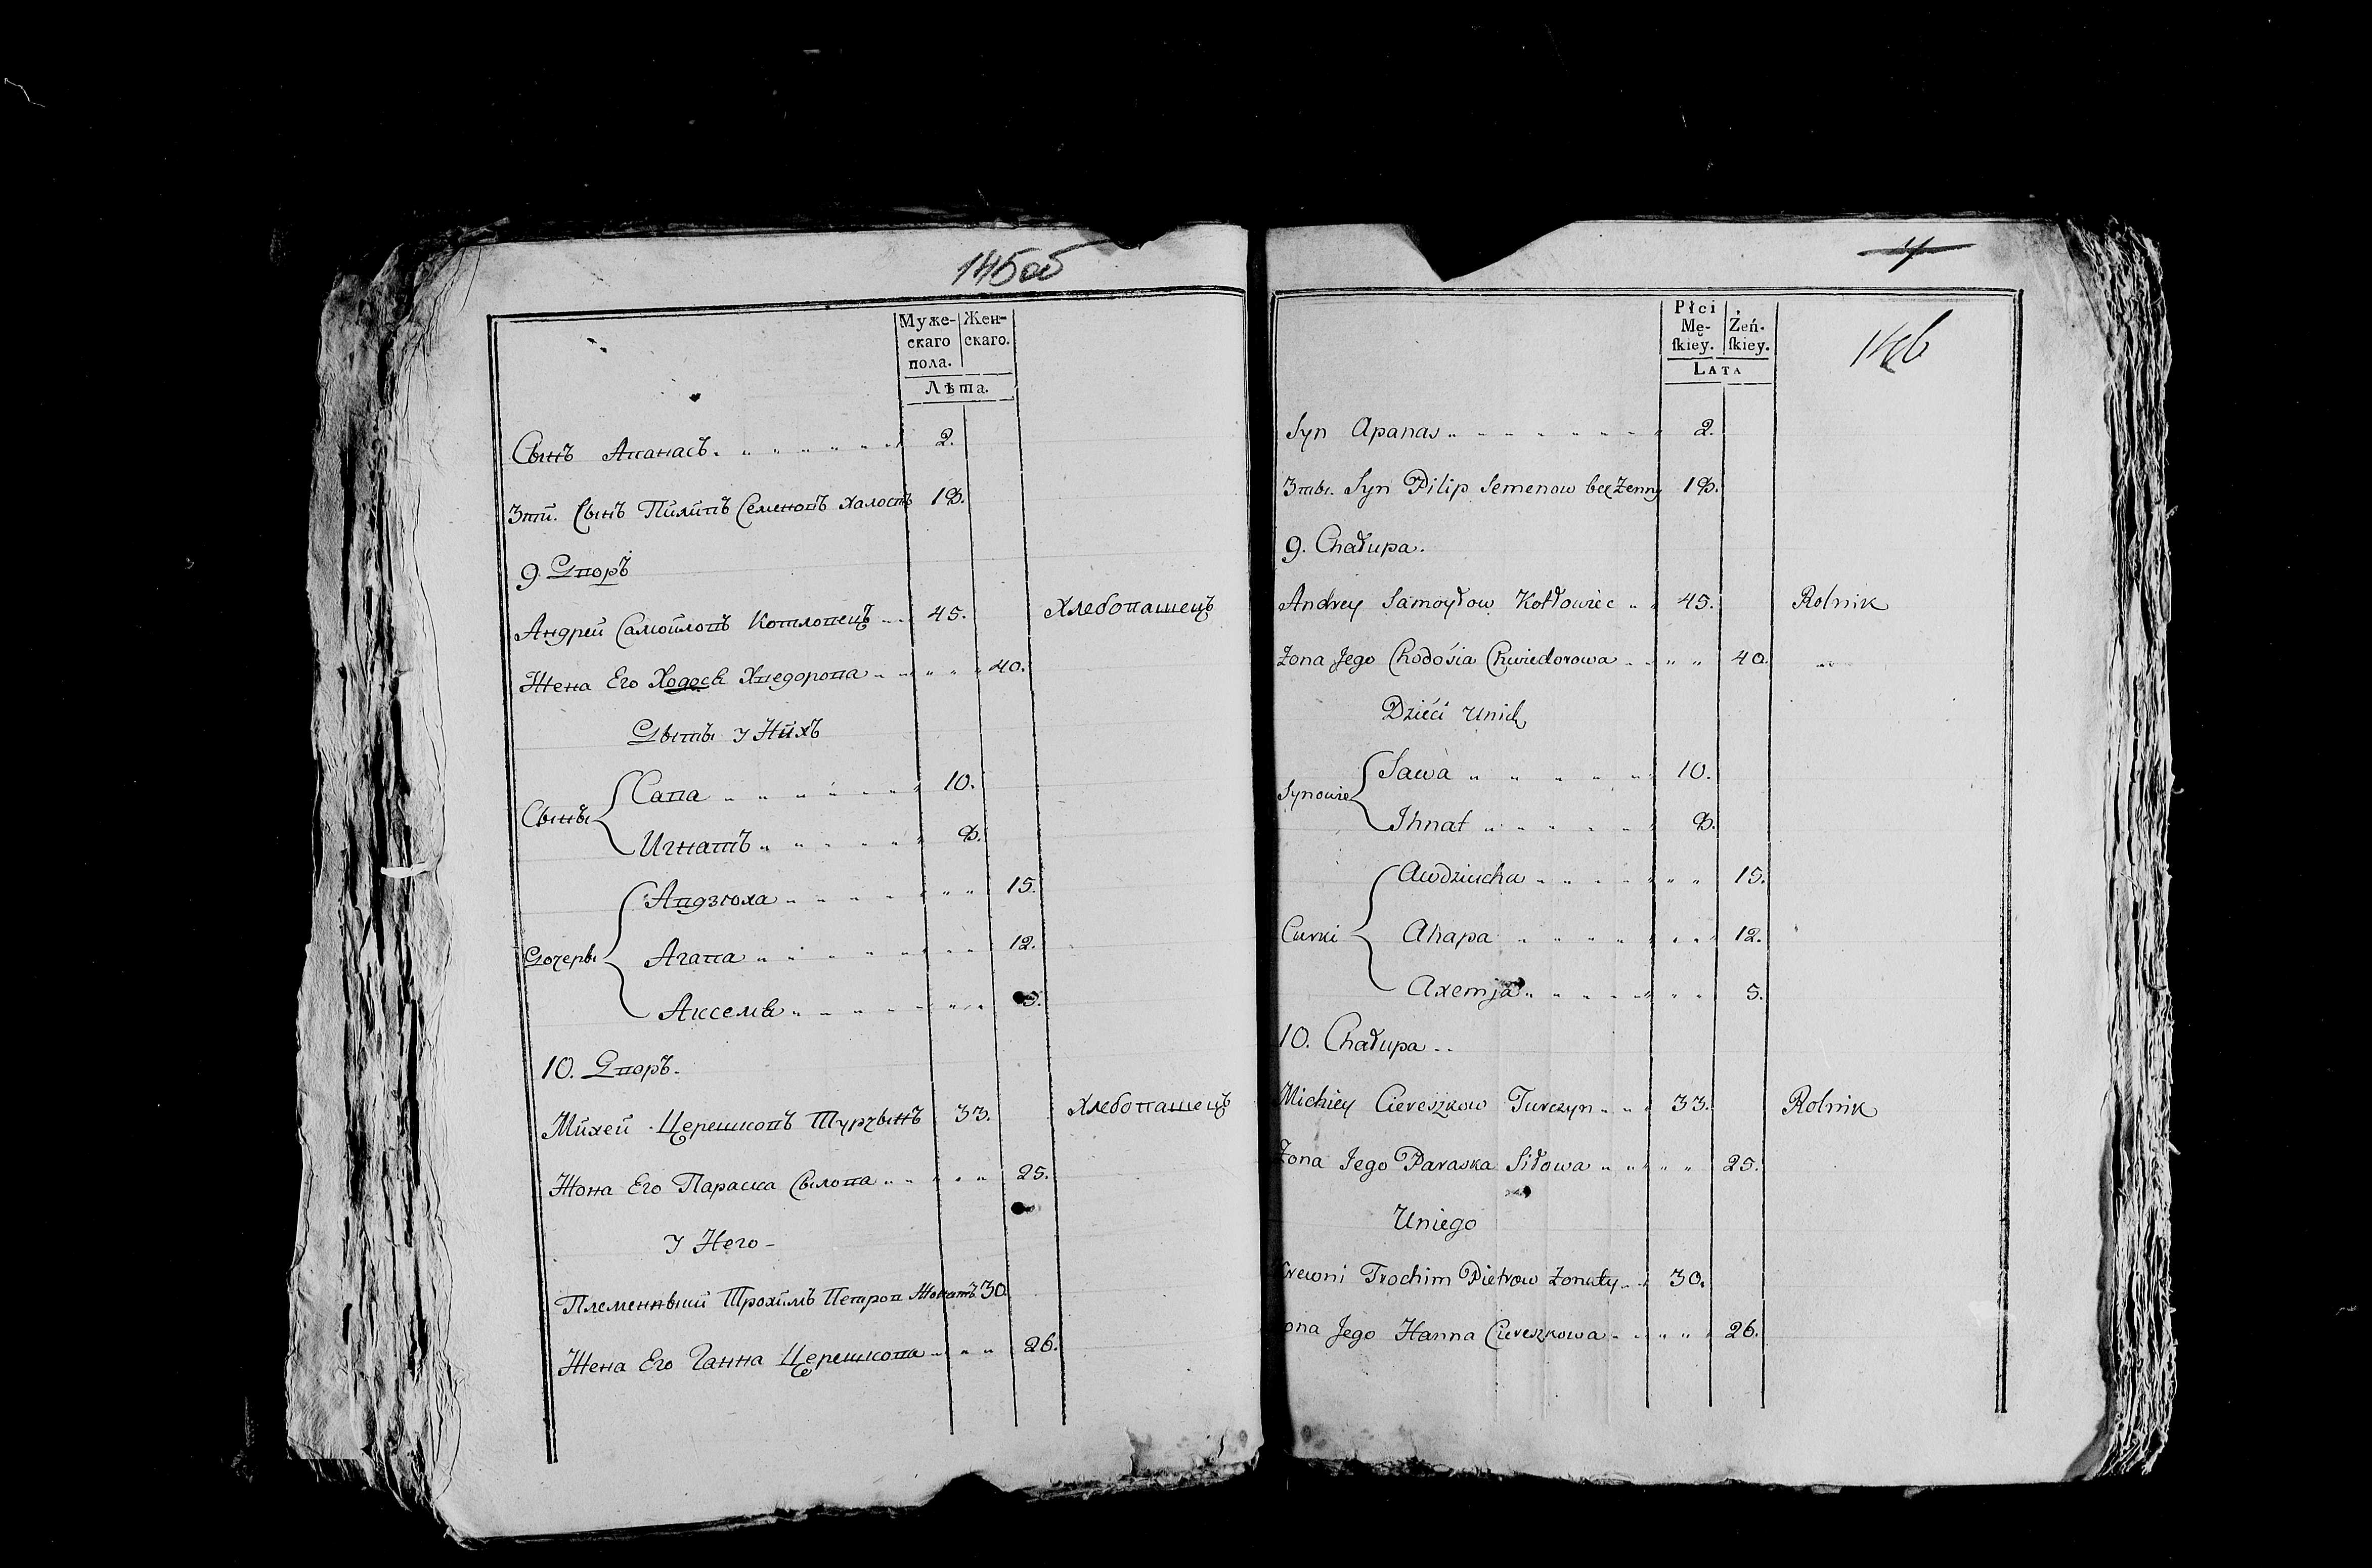 145об
Муже-
скаго
пола.
Жен-
скаго.
Лѣта.
Сынъ Апанасъ 2.
3тй. Сынъ Пилипъ Семеновъ халостъ 18.
9 Дворъ
Андрей Самойловъ Котловецъ 45. Хлебопашецъ
Жена Его Ходося Хведорова 40.
Дѣты у Нихъ
Сыны
Сава 10.
Игнатъ 8.
Дочеры
Авдзюха 15.
Агапа 12.
Аксемя 5.
10. Дворъ.
Михей Церешковъ Турчынъ 33. Хлебопашецъ
Жона Его Параска Сылова 25.
У Него
Племенный Трохимъ Петров Жонатъ 30
Жена Его Ганна Церешкова 26.
4
146
Płci
Mę-
skiey.
Żeń-
skiey.
Lata
Syn Apanas 2.
3ты. Syn Pilip Semenow bez żenny 18.
9. Chałupa.
Andrey Samoyłow Kotłowiec 45. Rolnik
Żona Jego Chodośia Chwiedorowa 40.
Dzieci Unich
Synowie
Sawa 10.
Ihnat 8.
Curki
Awdziucha 15.
Ahapa 12.
Axemja 5.
10. Chałupa
Michiey Ciereszkow Turczyn 33. Rolnik
Żona Jego Paraska Siłowa 25.
Uniego
Krewni Trochim Pietrow Żonaty 30.
ona Jego Hanna Ciereszkowa 26.